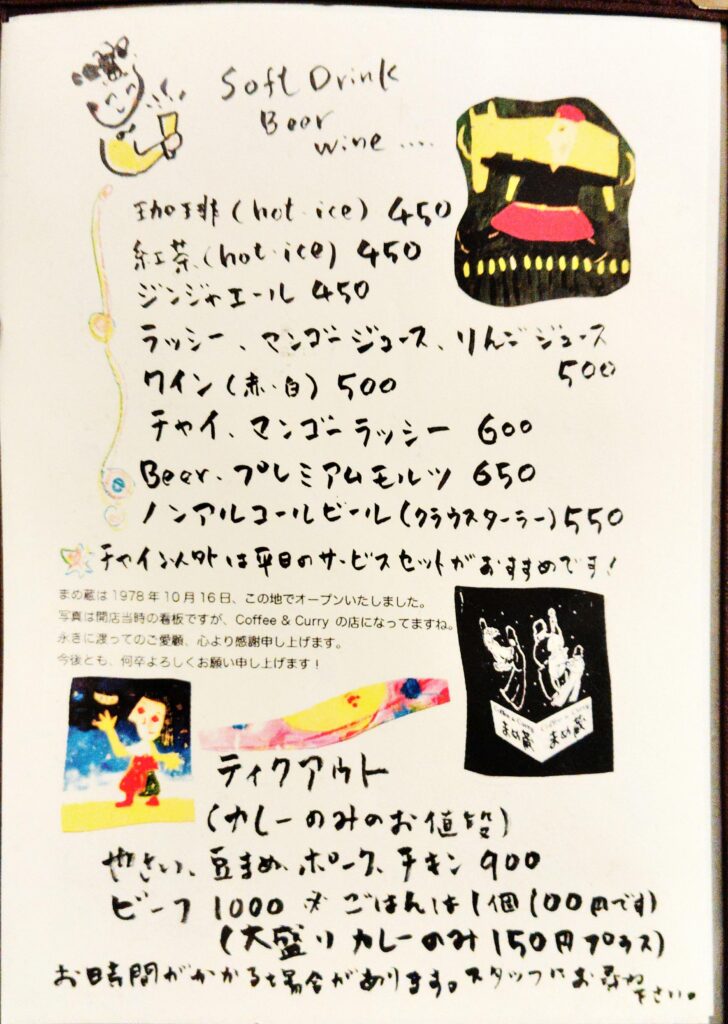 Soft Drink
Beer
wine ....
珈琲(hot・ice) 450
紅茶(hot・ice) 450
ジンジャエール 450
ラッシー、マンゴージュース、りんごジュース
500
ワイン(赤・白) 500
チャイ、マンゴーラッシー 600
Beer、プレミアムモルツ 650
ノンアルコールビール(クラウスターラー)550
チャイ以外は平日のサービスセットがおすすめです!
まめ蔵は1978年10月16日、この地でオープンいたしました。
写真は開店当時の看板ですが、Coffee & Curry の店になってますね。
永きに渡ってのご愛顧、心より感謝申し上げます。
今後とも、何卒よろしくお願い申し上げます!
Coffee & Curry Coffee & Curry
まめ蔵 まめ蔵
ティクアウト
(カレーのみのお値段)
やさい、豆まめ、ポーク、チキン 900
ビーフ 1000 ※ ごはんは1個100円です)
(大盛り カレーのみ150円プラス)
お時間がかかる場合があります。スタッフにお尋ね
下さい。